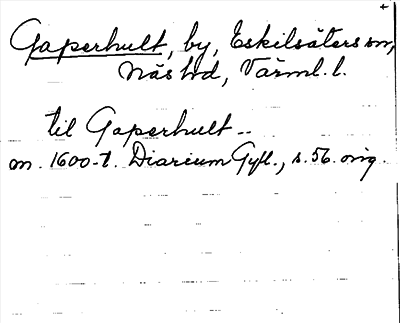 Gaperhult, by, Eskilsäters sn,
Näs hd, Värml. l.
til Gaperhult --
m. 1600-t. Diarium Gyll., s. 56. orig.